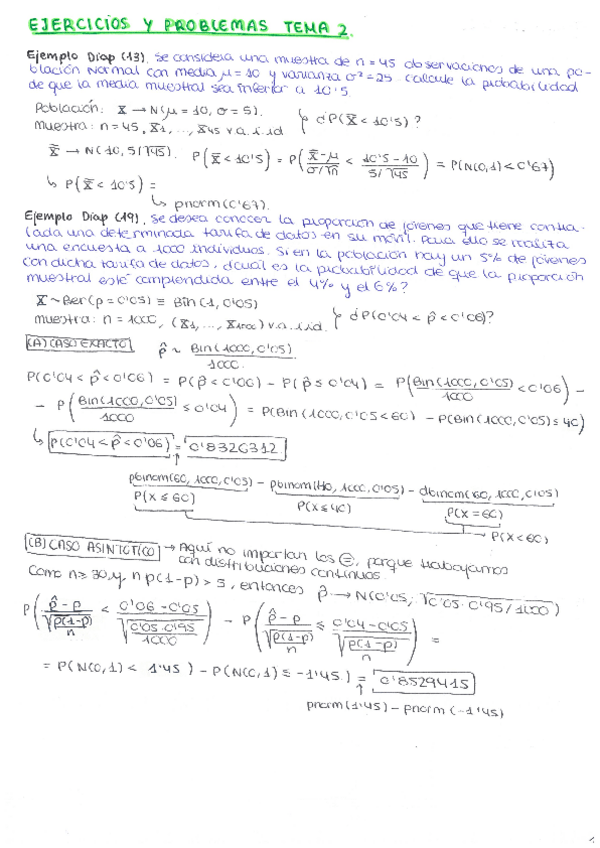 EJERCICIOS Y PROBLEMAS TEMA 2.
Ejemplo Diap (13). Se considera una muestra de n = 45 observaciones de una po-
blación Normal con media μ = 10 y varianza σ² = 25. Calcule la probabilidad
de que la media muestral sea inferior a 10'5.
Población: X → N(μ = 10, σ = 5).
¿P(X̄ < 10'5)?
muestra: n = 45, X1, ..., X45 v.a.i.id
X̄ → N(10, 5/√45). P(X̄ < 10'5) = P((X̄-μ)/(σ/√n) < (10'5-10)/(5/√45)) = P(N(0,1) < 0'67)
↳ P(X̄ < 10'5) =
↳ pnorm(0'67).
Ejemplo Diap (19). Se desea conocer la proporción de jóvenes que tiene contra-
tada una determinada tarifa de datos en su móvil. Para ello se realiza
una encuesta a 1000 individuos. Si en la población hay un 5% de jóvenes
con dicha tarifa de datos, ¿cuál es la probabilidad de que la proporción
muestral esté comprendida entre el 4% y el 6%?
X ~ Ber(p = 0'05) ≡ Bin(1, 0'05)
¿P(0'04 < p̂ < 0'06)?
muestra: n = 1000, (X1, ..., X1000) v.a.i.id.
(A) CASO EXACTO p̂ ~ Bin(1000, 0'05)/1000.
P(0'04 < p̂ < 0'06) = P(p̂ < 0'06) - P(p̂ ≤ 0'04) = P(Bin(1000, 0'05)/1000 < 0'06) -
- P(Bin(1000, 0'05)/1000 ≤ 0'04) = P(Bin(1000, 0'05 < 60) - P(Bin(1000, 0'05) ≤ 40)
↳ P(0'04 < p̂ < 0'06) = 0'8326312
pbinom(60, 1000, 0'05) - pbinom(40, 1000, 0'05) - dbinom(60, 1000, 0'05)
P(X ≤ 60) P(X ≤ 40) P(X = 60)
→ P(X < 60)
(B) CASO ASINTÓTICO → Aquí no importan los ⊜, porque trabajamos
con distribuciones continuas.
Como n ≥ 30 y n p(1-p) > 5, entonces p̂ → N(0'05, √(0'05·0'95/1000))
P((p̂-p)/√(p(1-p)/n) < (0'06-0'05)/√(0'05·0'95/1000)) - P((p̂-p)/√(p(1-p)/n) ≤ (0'04-0'05)/√(p(1-p)/n)) =
= P(N(0,1) < 1'45) - P(N(0,1) ≤ -1'45) = 0'8529415
pnorm(1'45) - pnorm(-1'45)